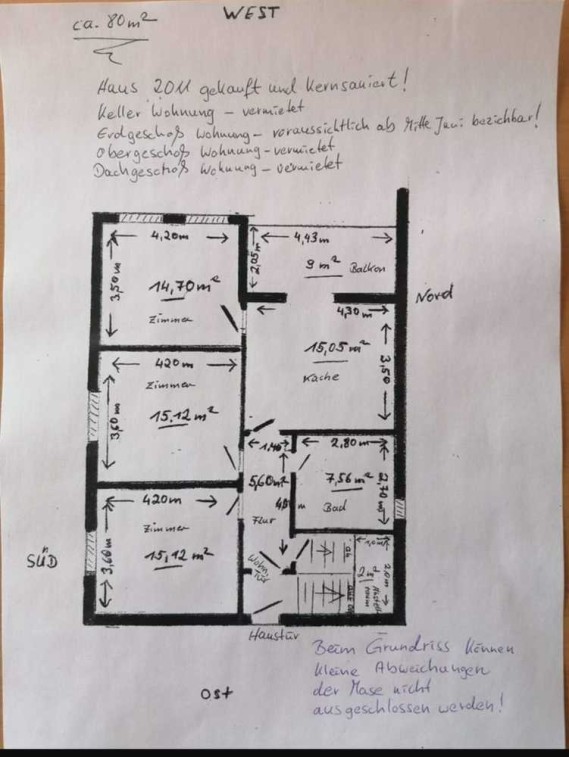 ca. 80m²
WEST
Haus 2011 gekauft und Kernsaniert!
Keller Wohnung - vermietet
Erdgeschoß Wohnung - voraussichtlich ab Mitte Juni beziehbar!
Obergeschoß Wohnung - vermietet
Dachgeschoß Wohnung - vermietet
4,20m
3,50m
14,70m²
Zimmer
4,43m
2,05m
9m²
Balkon
Nord
4,30m
15,05m²
3,50
Küche
420m
Zimmer
3,60m
15,12m²
1,40
2,80m
5,60m²
7,56m²
2,70m
Flur
Bad
420m
Zimmer
3,60m
15,12m²
SÜD
Wohn.
Tür
2,0m
Haustür
Ost
Beim Grundriss können
kleine Abweichungen
der Mase nicht
ausgeschlossen werden!